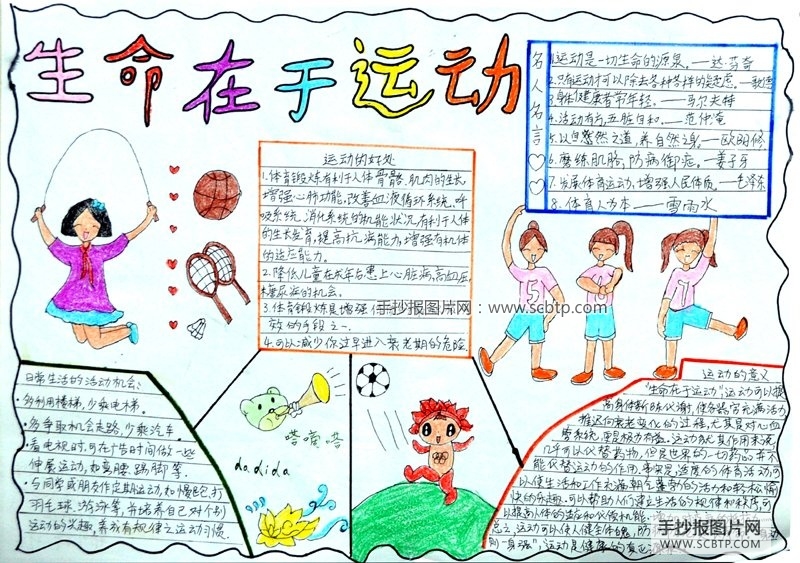 生命在于运动
名人名言
1.运动是一切生命的源泉。——达·芬奇
2.只有运动才可以除去各种各样的疑虑。——歌德
3.身体健康者常年轻。——马尔夫特
4.活动有方,五脏自和。——范仲淹
5.以自然之道,养自然之身。——欧阳修
6.磨练肌筋,防病御症。——姜子牙
7.发展体育运动,增强人民体质。——毛泽东
8.体育人为本——雪雨水
运动的好处
1.体育锻炼有利于人体骨骼、肌肉的生长
增强心肺功能,改善血液循环系统、呼
吸系统、消化系统的机能状况,有利于人体
的生长发育,提高抗病能力,增强有机体
的适应能力。
2.降低儿童在成年后患上心脏病,高血压,
糖尿病的机会。
3.体育锻炼是增强
效的手段之一.
4.可以减少你过早进入衰老期的危险.
手抄报图片网:www.scbtp.com
日常生活的活动机会:
·多利用楼梯,少乘电梯。
·多争取机会走路,少乘汽车。
·看电视时,可在广告时间做一些
伸展运动,如弯腰、踢脚等。
·与同学或朋友作定期运动,如慢跑、打
羽毛球、游泳等,并培养自己对个别
运动的兴趣,养成有规律之运动习惯.
嗒嘀嗒
dadida
5
6
1
运动的意义
"生命在于运动",运动可以提
高身体新陈代谢,使各器官充满活力
推迟向衰老变化的过程,尤其是对心血
管系统,更是极为有益。运动就其作用来说
几乎可以代替药物,但是世界的一切药品并不
能代替运动的作用。事实是,适度的体育活动可
以使生活和工作充满朝气蓬勃的活力和轻松愉
快的乐趣,可以帮助人们建立生活的规律和秩序,可
以提高人体的适应和代偿机能,
总之,运动可以使人健全体魄,防
则"身强",运动是健康的真正
手抄报图片网
WWW.SCBTP.COM